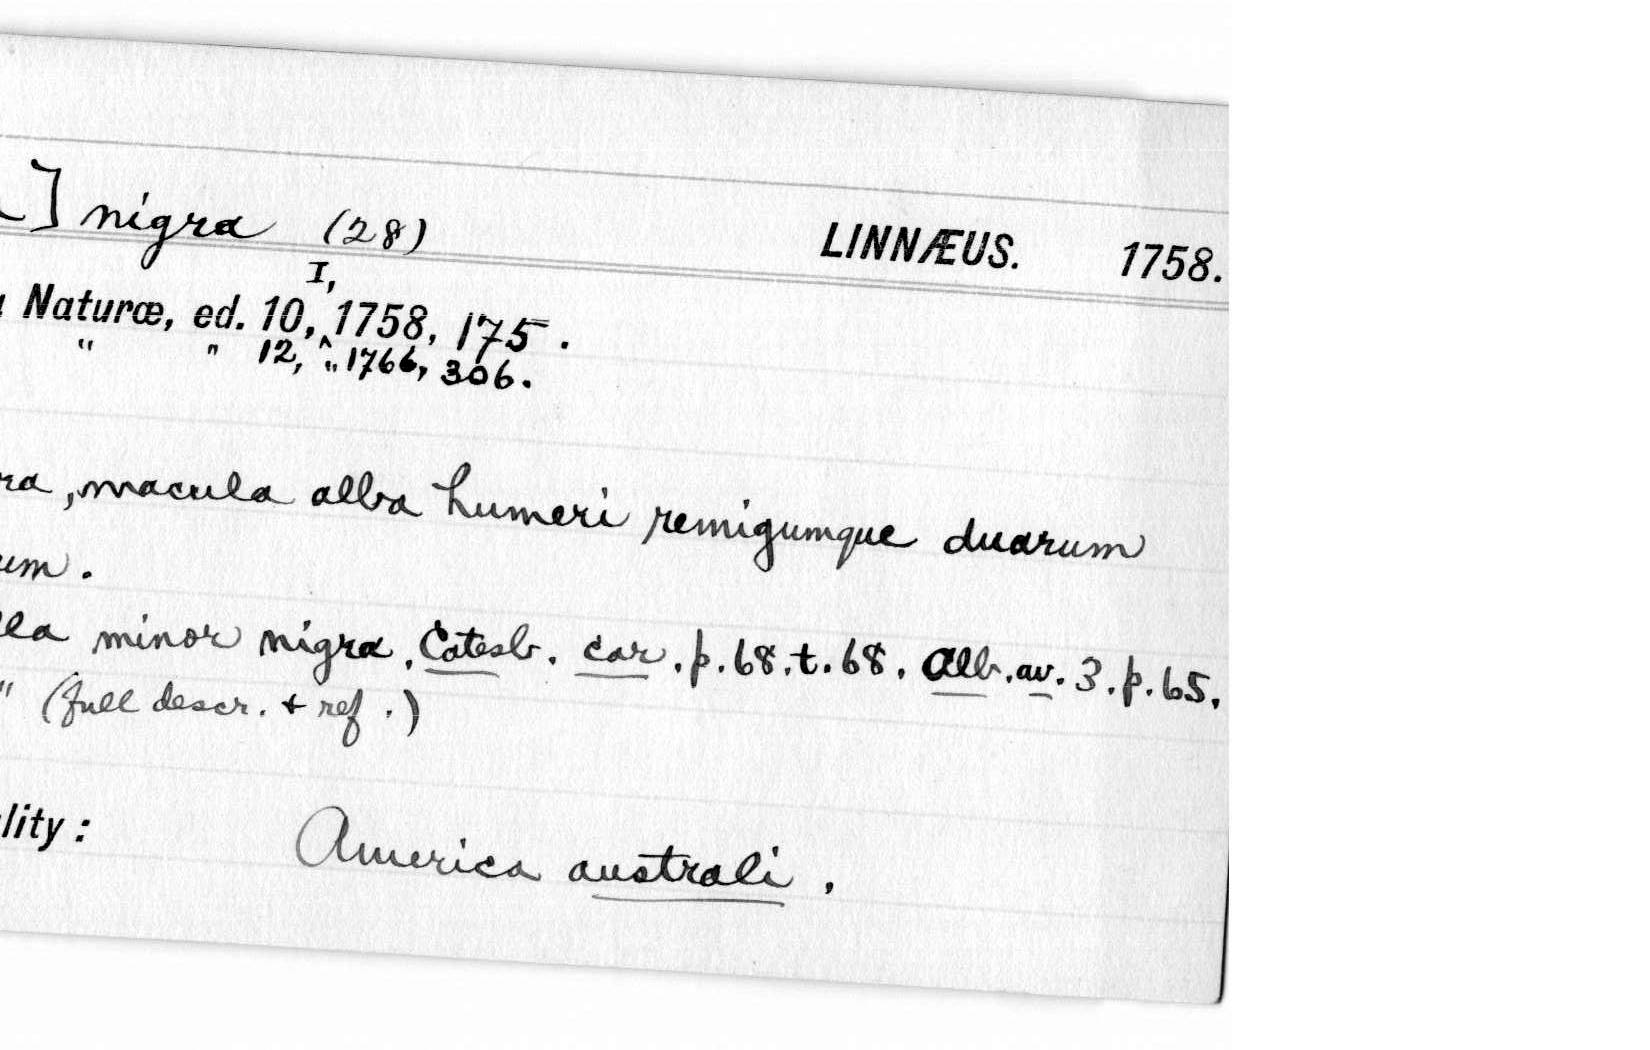 ] nigra (28) LINNÆUS. 1758.
I,
Naturæ, ed. 10, 1758, 175.
" " 12, " 1766, 306.
ra, macula alba humeri remigumque duarum
um.
lla minor nigra. Catesb. car. p. 68. t. 68. Alb. av. 3. p. 65.
" (full descr. + ref.)
lity: America australi.